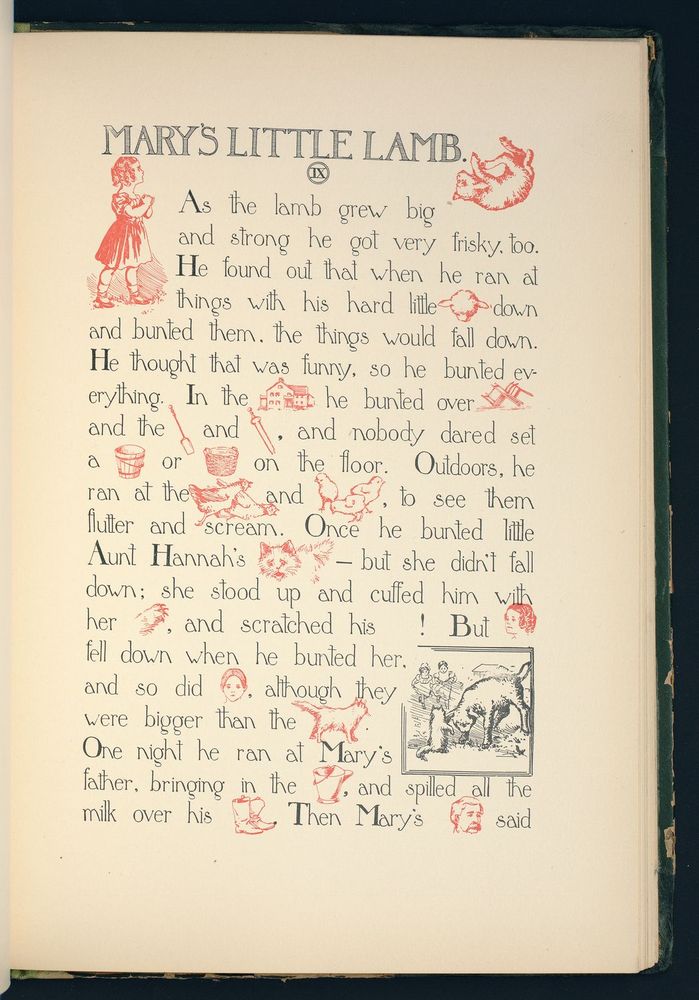 MARY'S LITTLE LAMB.
IX
As the lamb grew big
and strong he got very frisky, too.
He found out that when he ran at
things with his hard little down
and bunted them, the things would fall down.
He thought that was funny, so he bunted ev-
erything. In the he bunted over
and the and , and nobody dared set
a or on the floor. Outdoors, he
ran at the and , to see them
flutter and scream. Once he bunted little
Aunt Hannah's — but she didn't fall
down; she stood up and cuffed him with
her , and scratched his ! But
fell down when he bunted her,
and so did , although they
were bigger than the .
One night he ran at Mary's
father, bringing in the , and spilled all the
milk over his . Then Mary's said